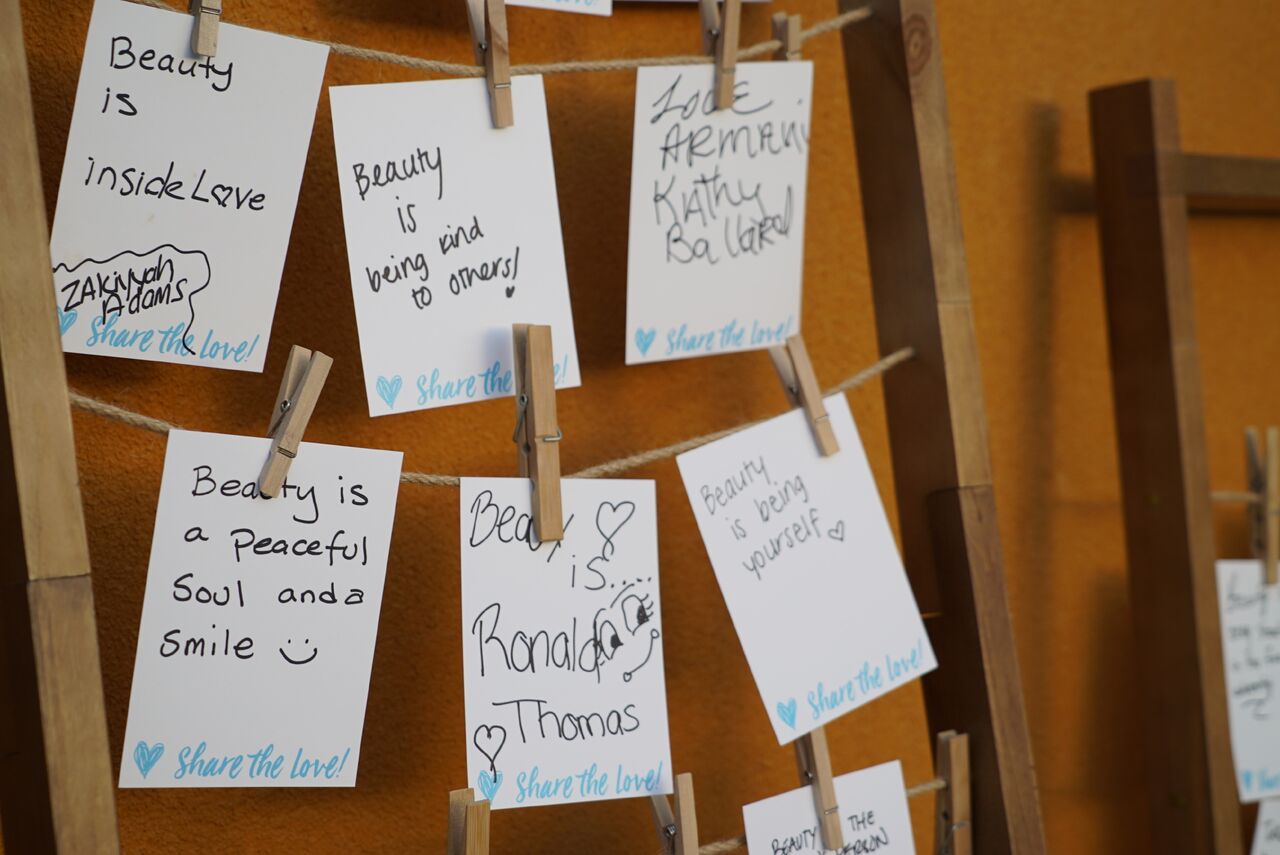 Beauty
is
inside Love
ZAKiyyah
Adams
Share the love!
Beauty
is
being kind
to others!
Share the
Love
ARMANi
KAthy
Ballard
Share the love!
Beauty is
a peaceful
Soul and a
Smile
Share the love!
Beauty
is....
Ronald
Thomas
Share the love!
Beauty
is being
yourself
Share the love!
BEAUTY THE
PERSON